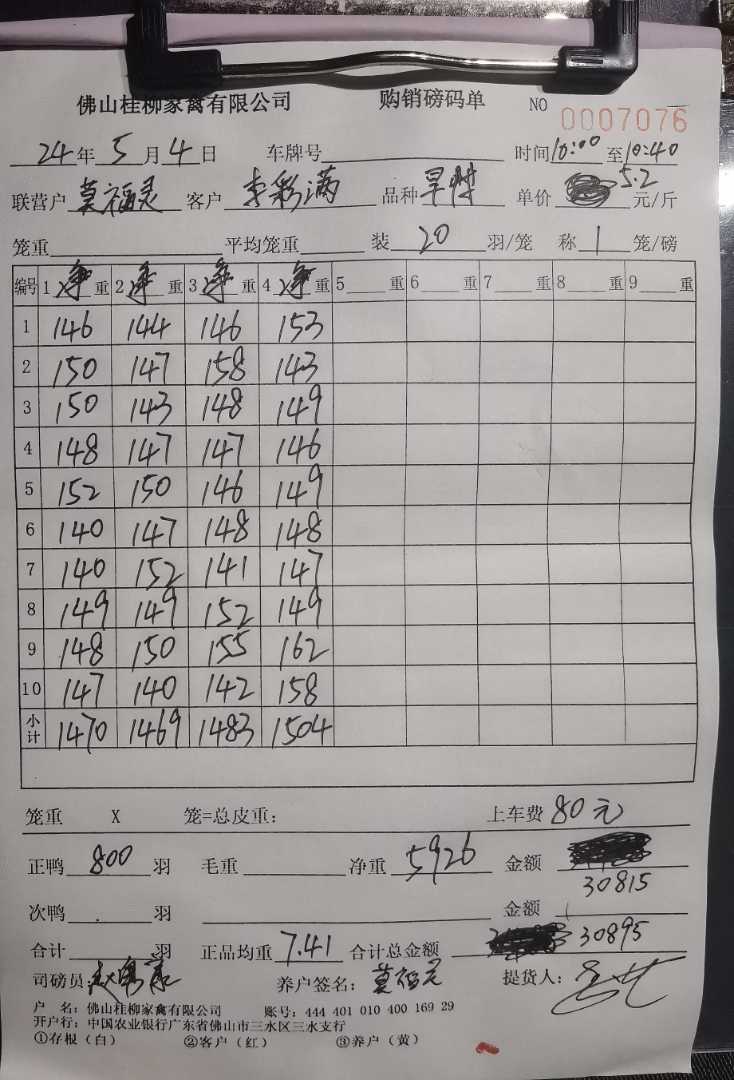 佛山桂柳家禽有限公司 购销磅码单 NO 0007076
24年5月4日 车牌号 时间10:00至10:40
联营户 莫福灵 客户 李彩满 品种 单价 5.2 元/斤
笼重 平均笼重 装 20 羽/笼 称 1 笼/磅
编号 1 净重 2 净重 3 净重 4 净重 5 重 6 重 7 重 8 重 9 重
1 146 144 146 153
2 150 147 158 143
3 150 143 148 149
4 148 147 147 146
5 152 150 146 149
6 140 147 148 148
7 140 152 141 147
8 149 149 152 149
9 148 150 155 162
10 147 140 142 158
小计 1470 1469 1483 1504
笼重 X 笼=总皮重: 上车费 80元
正鸭 800 羽 毛重 净重 5926 金额 30815
次鸭 羽 金额
合计 羽 正品均重 7.41 合计总金额 30895
司磅员: 养户签名: 莫福灵 提货人:
户 名: 佛山桂柳家禽有限公司 账号: 444 401 010 400 169 29
开户行: 中国农业银行广东省佛山市三水区三水支行
①存根(白) ②客户(红) ③养户(黄)